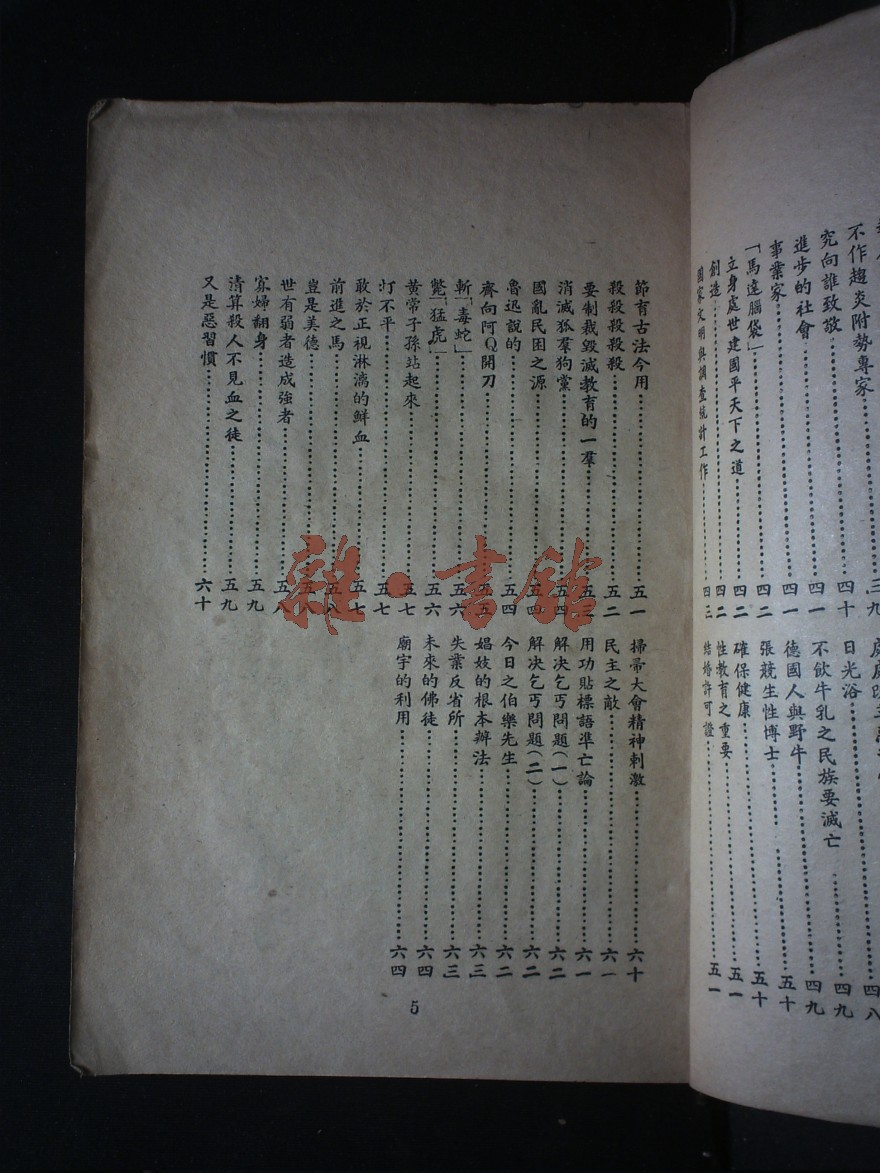 不作趨炎附勢專家 三九
究向誰致敬 四十
進步的社會 四一
事業家 四一
「馬達腦袋」 四二
立身處世建國平天下之道 四二
創造 四二
國家文明與調查統計工作 四三
四八
日光浴 四九
不飲牛乳之民族要滅亡 四九
德國人與野牛 五十
張競生性博士 五十
確保健康 五一
性教育之重要 五一
結婚許可證 五一
節育古法今用 五一
殺殺殺殺殺 五二
要制裁毀滅教育的一羣 五三
消滅狐羣狗黨 五四
國亂民困之源 五四
魯迅說的 五四
齊向阿Q開刀 五五
斬「毒蛇」 五六
斃「猛虎」 五六
黃帝子孫站起來 五七
打不平 五七
敢於正視淋漓的鮮血 五七
前進之馬 五八
豈是美德 五八
世有弱者造成強者 五八
寡婦翻身 五九
清算殺人不見血之徒 五九
又是惡習慣 六十
掃帚大會精神刺激 六十
民主之敵 六一
用功貼標語準亡論 六一
解決乞丐問題(一) 六二
解決乞丐問題(二) 六二
今日之伯樂先生 六二
娼妓的根本辦法 六三
失業反省所 六三
未來的佛徒 六四
廟宇的利用 六四
5
雜·書館